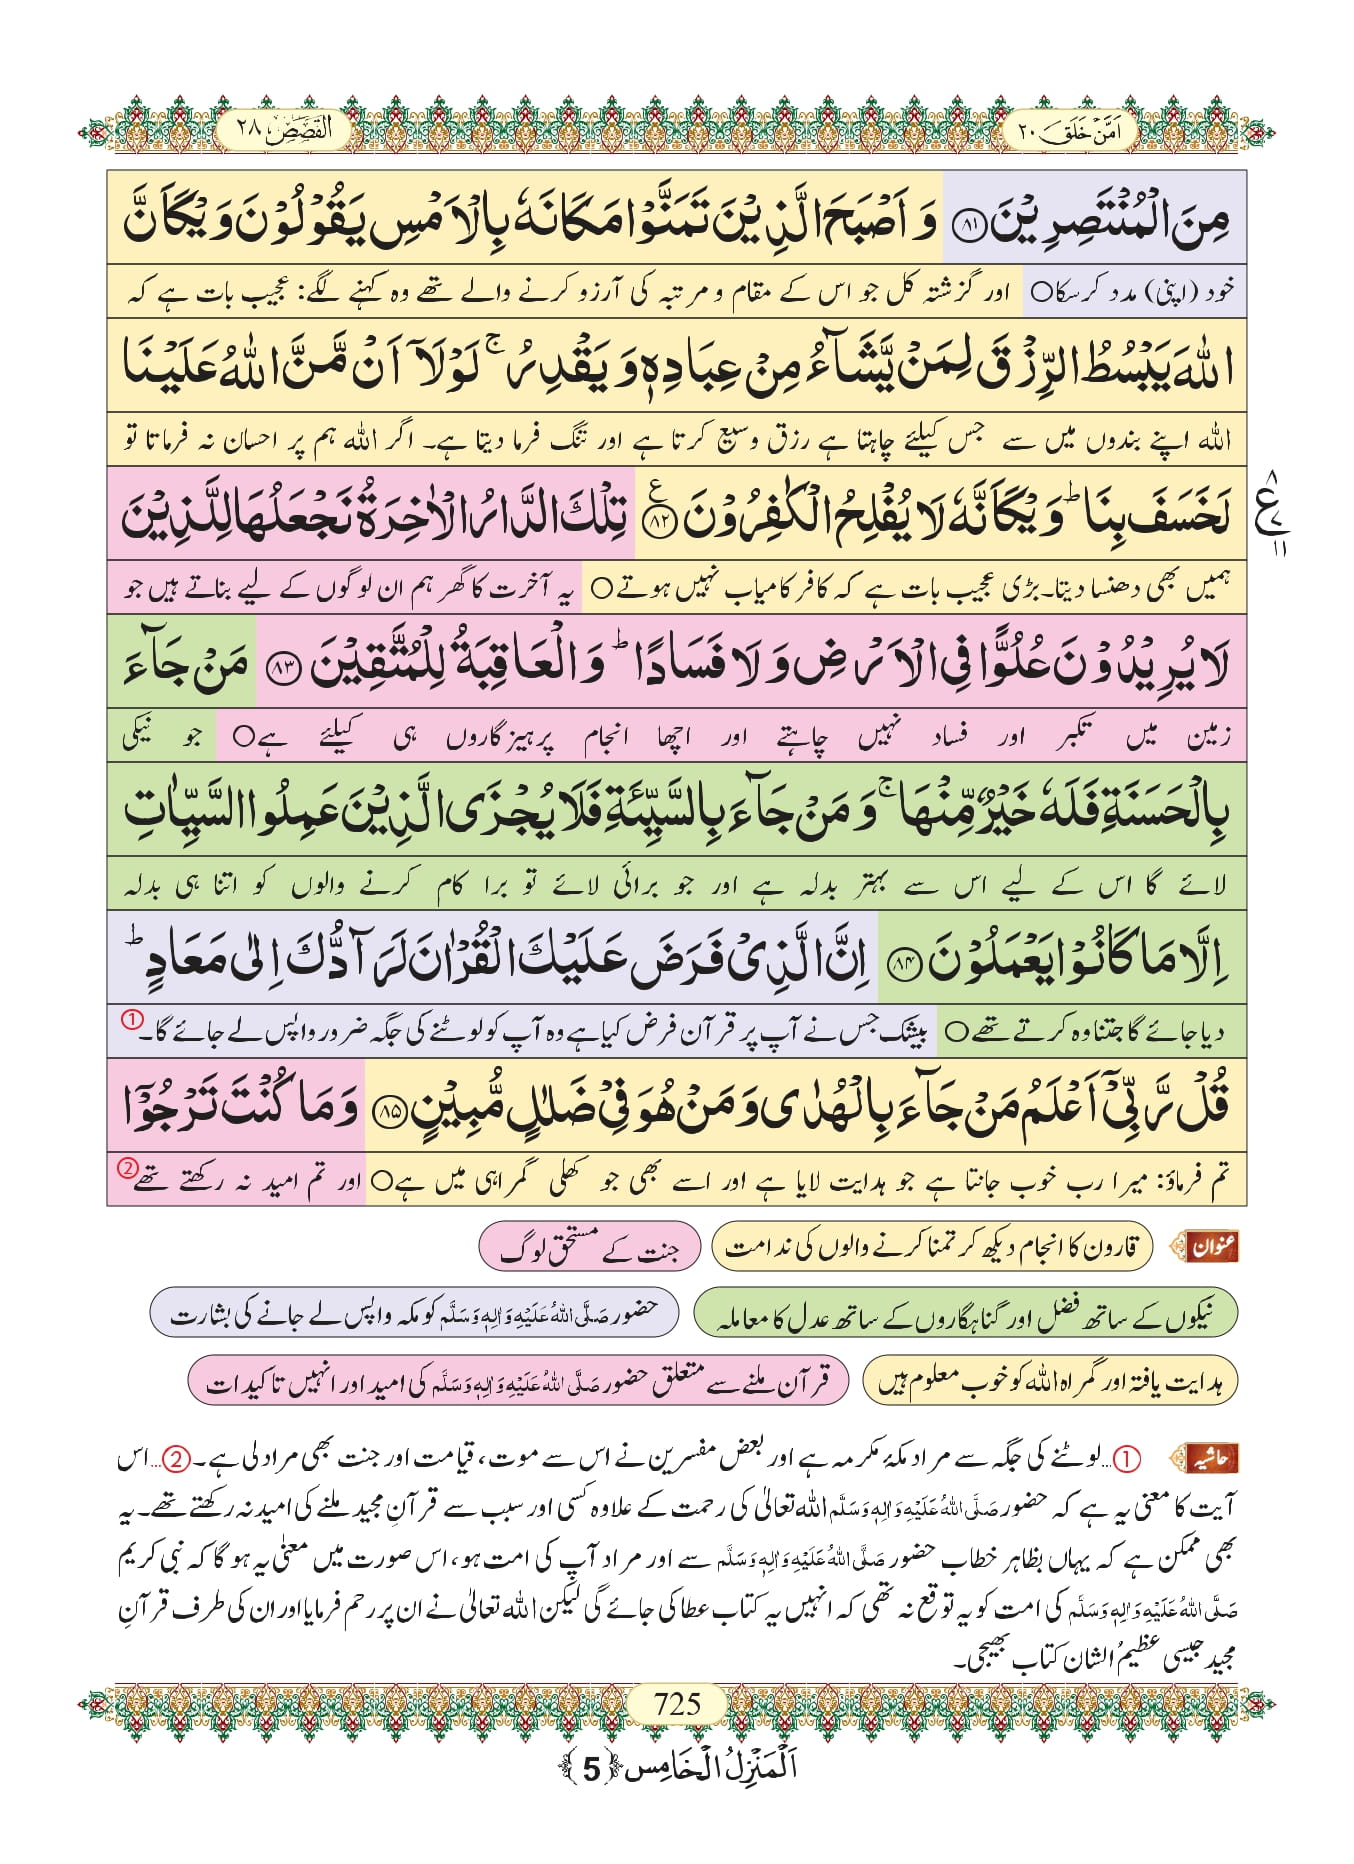 اَمَّنْ خَلَقَ ٢٠
القَصَص ٢٨
مِنَ الْمُنْتَصِرِیْنَ ﴿۸۱﴾ وَ اَصْبَحَ الَّذِیْنَ تَمَنَّوْا مَكَانَهٗ بِالْاَمْسِ یَقُوْلُوْنَ وَیْكَاَنَّ
خود (اپنی) مدد کرسکا○ اور گزشتہ کل جو اس کے مقام و مرتبہ کی آرزو کرنے والے تھے وہ کہنے لگے: عجیب بات ہے کہ
اللّٰهَ یَبْسُطُ الرِّزْقَ لِمَنْ یَّشَآءُ مِنْ عِبَادِهٖ وَ یَقْدِرُ ۚ لَوْلَاۤ اَنْ مَّنَّ اللّٰهُ عَلَیْنَا
اللہ اپنے بندوں میں سے جس کیلئے چاہتا ہے رزق وسیع کرتا ہے اور تنگ فرما دیتا ہے۔ اگر اللہ ہم پر احسان نہ فرماتا تو
لَخَسَفَ بِنَا ؕ وَیْكَاَنَّهٗ لَا یُفْلِحُ الْكٰفِرُوْنَ ﴿۸۲﴾ ع تِلْكَ الدَّارُ الْاٰخِرَةُ نَجْعَلُهَا لِلَّذِیْنَ
۸
ع ۷
۱۱
ہمیں بھی دھنسا دیتا۔ بڑی عجیب بات ہے کہ کافر کامیاب نہیں ہوتے○ یہ آخرت کا گھر ہم ان لوگوں کے لیے بناتے ہیں جو
لَا یُرِیْدُوْنَ عُلُوًّا فِی الْاَرْضِ وَ لَا فَسَادًا ؕ وَ الْعَاقِبَةُ لِلْمُتَّقِیْنَ ﴿۸۳﴾ مَنْ جَآءَ
زمین میں تکبر اور فساد نہیں چاہتے اور اچھا انجام پرہیزگاروں ہی کیلئے ہے○ جو نیکی
بِالْحَسَنَةِ فَلَهٗ خَیْرٌ مِّنْهَا ۚ وَ مَنْ جَآءَ بِالسَّیِّئَةِ فَلَا یُجْزَی الَّذِیْنَ عَمِلُوا السَّیِّاٰتِ
لائے گا اس کے لیے اس سے بہتر بدلہ ہے اور جو برائی لائے تو برا کام کرنے والوں کو اتنا ہی بدلہ
اِلَّا مَا كَانُوْا یَعْمَلُوْنَ ﴿۸۴﴾ اِنَّ الَّذِیْ فَرَضَ عَلَیْكَ الْقُرْاٰنَ لَرَآدُّكَ اِلٰى مَعَادٍ ؕ
دیا جائے گا جتنا وہ کرتے تھے○ بیشک جس نے آپ پر قرآن فرض کیا ہے وہ آپ کو لوٹنے کی جگہ ضرور واپس لے جائے گا۔ ①
قُلْ رَّبِّیْۤ اَعْلَمُ مَنْ جَآءَ بِالْهُدٰى وَ مَنْ هُوَ فِیْ ضَلٰلٍ مُّبِیْنٍ ﴿۸۵﴾ وَ مَا كُنْتَ تَرْجُوْۤا
تم فرماؤ: میرا رب خوب جانتا ہے جو ہدایت لایا ہے اور اسے بھی جو کھلی گمراہی میں ہے○ اور تم امید نہ رکھتے تھے ②
عنوان قارون کا انجام دیکھ کر تمنا کرنے والوں کی ندامت جنت کے مستحق لوگ
نیکوں کے ساتھ فضل اور گناہگاروں کے ساتھ عدل کا معاملہ حضور صَلَّی اللہُ عَلَیْہِ وَاٰلِہٖ وَسَلَّم کو مکہ واپس لے جانے کی بشارت
ہدایت یافتہ اور گمراہ اللہ کو خوب معلوم ہیں قرآن ملنے سے متعلق حضور صَلَّی اللہُ عَلَیْہِ وَاٰلِہٖ وَسَلَّم کی امید اور انہیں تاکیدات
حاشیہ ①...لوٹنے کی جگہ سے مراد مکۂ مکرمہ ہے اور بعض مفسرین نے اس سے موت، قیامت اور جنت بھی مراد لی ہے۔ ②...اس
آیت کا معنی یہ ہے کہ حضور صَلَّی اللہُ عَلَیْہِ وَاٰلِہٖ وَسَلَّم اللہ تعالیٰ کی رحمت کے علاوہ کسی اور سبب سے قرآنِ مجید ملنے کی امید نہ رکھتے تھے۔ یہ
بھی ممکن ہے کہ یہاں بظاہر خطاب حضور صَلَّی اللہُ عَلَیْہِ وَاٰلِہٖ وَسَلَّم سے اور مراد آپ کی امت ہو، اس صورت میں معنیٰ یہ ہو گا کہ نبی کریم
صَلَّی اللہُ عَلَیْہِ وَاٰلِہٖ وَسَلَّم کی امت کو یہ توقع نہ تھی کہ انہیں یہ کتاب عطا کی جائے گی لیکن اللہ تعالیٰ نے ان پر رحم فرمایا اور ان کی طرف قرآنِ
مجید جیسی عظیمُ الشان کتاب بھیجی۔
725
اَلْمَنْزِلُ الْخَامِس ﴿5﴾